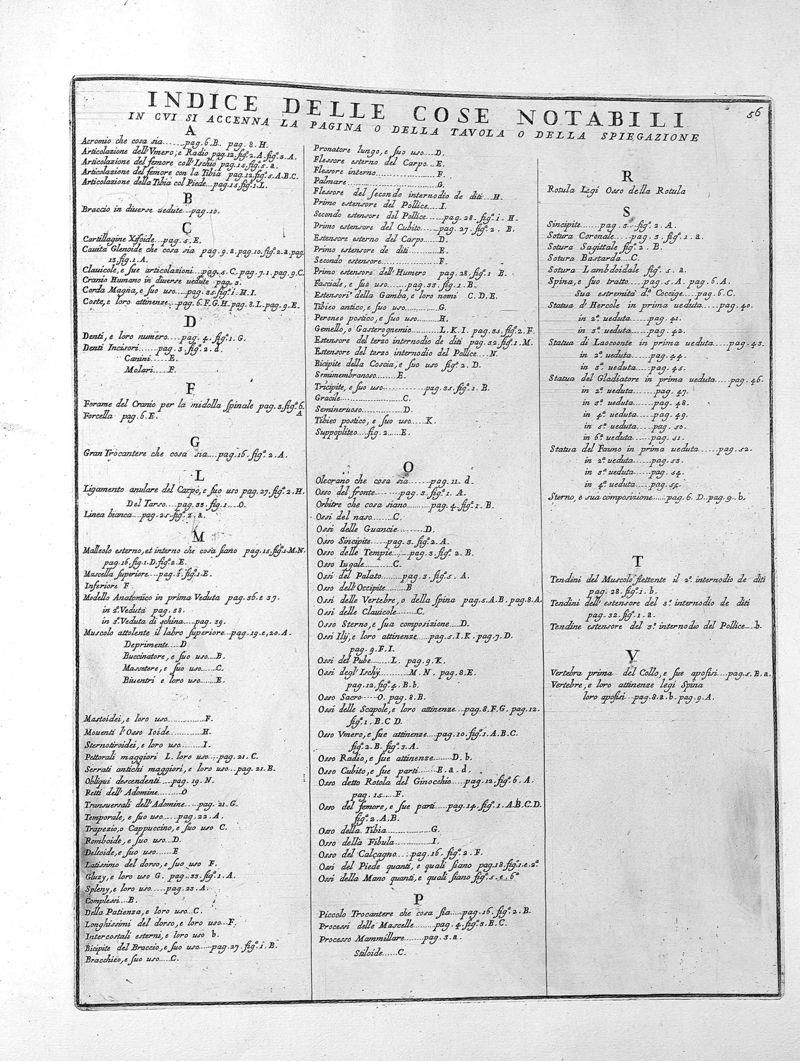 INDICE DELLE COSE NOTABILI
56
IN CVI SI ACCENNA LA PAGINA O DELLA TAVOLA O DELLA SPIEGAZIONE
A
Acromio che cosa sia......pag.6.B. pag.8.H.
Articolazione dell'Vmero, e Radio pag.12.fig.2.A.fig.2.A.
Articolazione del femore coll'Ischio pag.15.fig.5.a.
Articolazione del femore con la Tibia pag.12.fig.5.A.B.C.
Articolazione della Tibia col Piede...pag.15.fig.1.L.
B
Braccio in diverse uedute...pag.10.
C
Cartillagine Xifoide...pag.5.E.
Cauita Glenoide che cosa sia pag.9.2.pag.10.fig.2.2.pag.
13.fig.1.A.
Clauicole, e sue articolazioni...pag.5.C.pag.7.1.pag.9.C.
Cranio Humano in diverse uedute pag.3.
Corda Magna, e suo uso...pag.35.fig.1.H.I.
Coste, e loro attinenze...pag.6.F.G.H.pag.8.L.pag.9.E.
D
Denti, e loro numero....pag.4.fig.1.G.
Denti Incisori.....pag.3.fig.2.d.
Canini......E.
Molari.....F.
F
Forame del Cranio per la midolla spinale pag.3.fig.6.
A
Forcella pag.6.E.
G
Gran Trocantere che cosa sia....pag.16.fig.2.A.
L
Ligamento anulare del Carpo, e suo uso pag.27.fig.2.H.
Del Tarso....pag.33.fig.1....O.
Linea bianca...pag.25.fig.2.2.
M
Malleolo esterno, et interno che cosa siano pag.15.fig.1.M.N.
pag.16.fig.1.D.fig.2.E.
Mascella superiore...pag.4.fig.1.E.
Inferiore F
Modello Anatomico in prima Veduta pag.36.e 37.
in 2ª Veduta pag.38.
in 3ª Veduta di schina....pag.39.
Muscolo attolente il labro superiore...pag.19.e,20.A.
Deprimente....D
Buccinatore, e suo uso...B.
Massetere, e suo uso....C.
Biuentri e loro uso....E.
Mastoidei, e loro uso.............F.
Mouenti l'Osso Ioide..............H.
Sternotiroidei, e loro uso........I.
Pettorali maggiori L. loro uso..pag.21.C.
Serrati antichi maggiori, e loro uso..pag.21.B.
Obliqui descendenti....pag.19.N.
Retti dell'Adomine........O
Transuersali dell'Adomine....pag.21.G.
Temporale, e suo uso.....pag.22.A.
Trapezio, o Cappuccino, e suo uso C.
Romboide, e suo uso...D.
Deltoide, e suo uso.......E
Latissimo del dorso, e suo uso F.
Gluzy, e loro uso G. pag.33.fig.1.A.
Spleny, e loro uso.....pag.23.A.
Complessi...B.
Della Patienza, e loro uso..C.
Longhissimi del dorso, e loro uso..F.
Intercostali esterni, e loro uso b.
Bicipite del Braccio, e suo uso....pag.27.fig.1.B.
Bracchieo, e suo uso....C.
Pronatore lungo, e suo uso...D.
Flessore esterno del Carpo...E.
Flessore interno....................F.
Palmare..............................G.
Flessore del secondo internodio de diti.....H.
Primo estensore del Pollice.....I.
Secondo estensore del Pollice.....pag.28.fig.1.H.
Primo estensore del Cubito....pag.27.fig.2. B.
Estensore esterno del Carpo....D.
Primo estensore de diti...........E.
Secondo estensore...................F.
Primo estensori dell'Humero pag.28.fig.1 B.
Fasciale, e suo uso......pag.33.fig.1.B.
Estensori della Gamba, e loro nomi C.D.E.
Tibieo antico, e suo uso..........G.
Peroneo postico, e suo uso........H.
Gemello, o Gasterognemio.......L.K.I. pag.34.fig.2.F.
Estensore del terzo internodio de diti pag.32.fig.1.M.
Estensore del terzo internodio del Pollice....N.
Bicipite della Coscia, e suo uso fig.2.D.
Semimembranoso......E.
Tricipite, e suo uso............pag.35.fig.1.B.
Gracile..................C.
Semineruoso............D.
Tibieo postico, e suo uso....K.
Suppopliteo...fig.2......E.
O
Olecrano che cosa sia......pag.11.d.
Osso del fronte......pag.3.fig.1.A.
Orbitre che cosa siano.......pag.4.fig.1.B.
Ossi del naso......C.
Ossi delle Guancie......D.
Osso Sincipite.....pag.3.fig.2.A.
Osso delle Tempie....pag.3.fig.2.B.
Osso Iugale........C.
Ossi del Palato......pag.3.fig.5.A.
Osso dell'Occipite......B
Ossi delle Vertebre, o della Spina pag.5.A.B.pag.8.A.
Ossi delle Clauicole.....C.
Osso Sterno, e sua composizione....D.
Ossi Ilij, e loro attinenze......pag.5.I.K.pag.7.D.
pag.9.F.I.
Ossi del Pube.......L. pag.9.K.
Ossi degl'Ischy.......M.N. pag.8.E.
pag.12.fig.4.B.b.
Osso Sacro.....O.pag.8.B.
Ossi delle Scapole, e loro attinenze...pag.8.F.G.pag.12.
fig.1.B.C D.
Osso Vmero, e sue attinenze....pag.10.fig.1.A.B.C.
fig.2.B.fig.3.A.
Osso Radio, e sue attinenze......D.b.
Osso Cubito, e sue parti.....E.a.d.
Osso detto Rotola del Ginocchio....pag.12.fig.6.A.
pag.15......F.
Osso del femore, e sue parti....pag.14.fig.1.A.B.C.D.
fig.2.A.B.
Osso della Tibia..............G.
Osso della Fibula.............I.
Osso del Calcagno....pag.16.fig.2.F.
Ossi del Piede quanti, e quali siano pag.18.fig.1.e.2ª
Ossi della Mano quanti, e quali siano fig.5.e.6ª
P
Piccolo Trocantere che cosa sia....pag.16.fig.2.B.
Processi delle Mascelle........pag.4.fig.3.B.C.
Processo Mammillare......pag.3.a.
Stiloide......C.
R
Rotula Legi Osso della Rotula
S
Sincipite......pag.3.fig.2.A.
Sotura Coronale....pag.3.fig.1.a.
Sotura Sagittale fig.2.B.
Sotura Bastarda...C.
Sotura Lambdoidale fig.5.a.
Spina, e suo tratto....pag.5.A.pag.6.A.
Sua estremità d.ª Coccige....pag.6.C.
Statua d'Hercole in prima ueduta....pag.40.
in 2ª ueduta....pag.41.
in 3ª ueduta....pag.42.
Statua di Laoconte in prima ueduta....pag.43.
in 2ª ueduta....pag.44.
in 3ª ueduta....pag.45.
Statua del Gladiatore in prima ueduta....pag.46.
in 2ª ueduta......pag.47.
in 3ª ueduta......pag.48.
in 4ª ueduta.....pag.49.
in 5ª ueduta.....pag.50.
in 6ª ueduta....pag.51.
Statua del Fauno in prima ueduta......pag.52.
in 2ª ueduta....pag.53.
in 3ª ueduta....pag.54.
in 4ª ueduta....pag.55.
Sterno, e sua composizione.....pag.6.D.pag.9.b.
T
Tendini del Muscolo flettente il 2º internodio de diti
pag.28.fig.1.b.
Tendini dell'estensore del 3º internodio de diti
pag.32.fig.1.a.
Tendine estensore del 3º internodio del Pollice...b.
V
Vertebra prima del Collo, e sue apofisi....pag.5.B.a.
Vertebre, e loro attinenze legi Spina
loro apofisi...pag.8.a.b.pag.9.A.